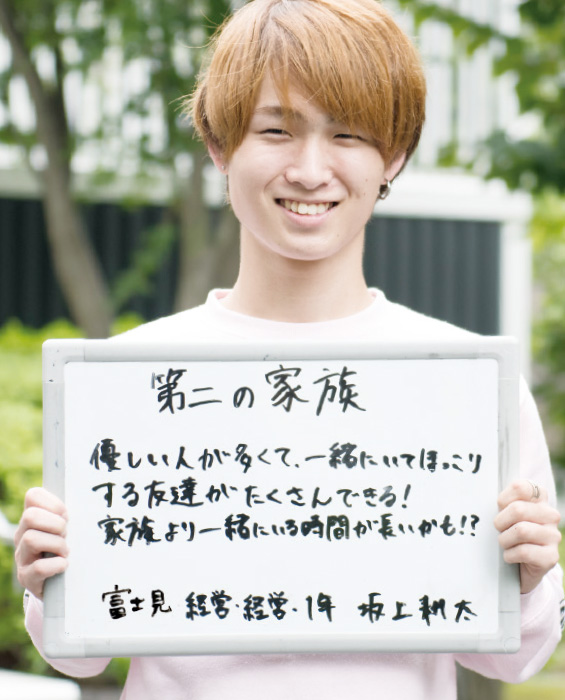 第二の家族
優しい人が多くて、一緒にいてほっこり
する友達がたくさんできる!
家族より一緒にいる時間が長いかも!?
富士見 経営・経営・1年 坂上耕太